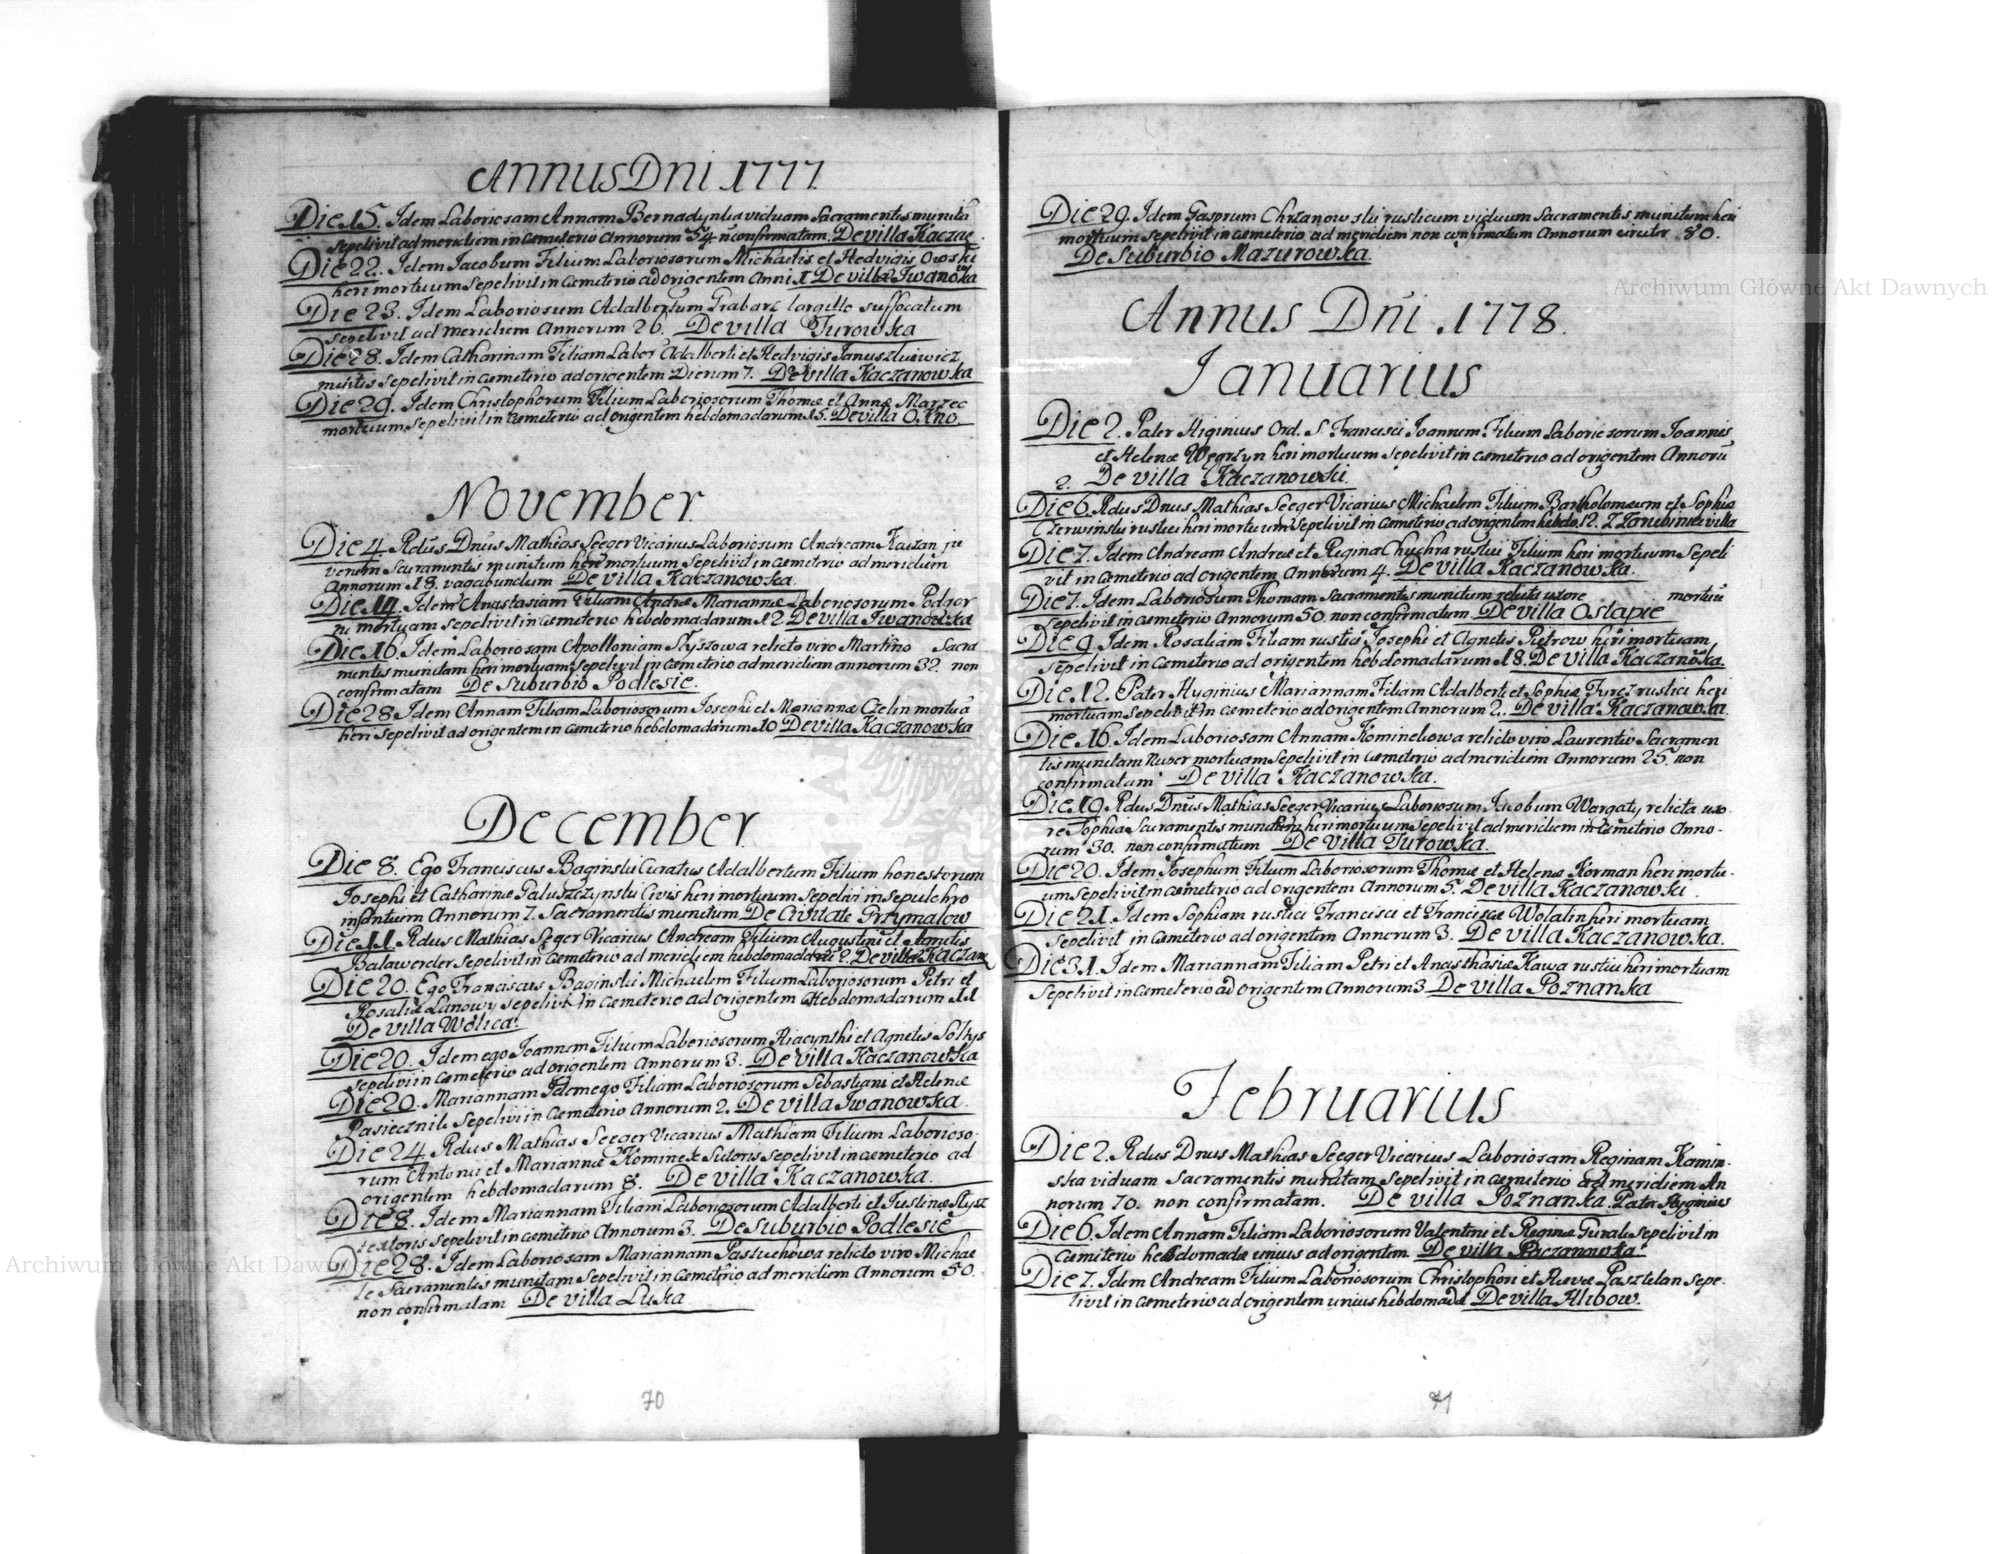 Annus Dni 1777
Die 15. Idem Laboriosam Annam Bernadynka viduam Sacramentis munitã
sepelivit ad meridiem in Cæmeterio Annorum 54 n confirmatam. De villa Kaczae
Die 22. Idem Jacobum Filium Laboriosorum Michaelis et Hedvigis Owski
heri mortuum sepelivit in Cæmeterio ad origentem Anni 1 De villa Iwanowka
Die 23. Idem Laboriosum Adalbertum Grabarz largillo suffocatum
sepelivit ad meridiem Annorum 26. De villa Turowka
Die 28. Idem Catharinam Filiam Labor Adalberti et Hedvigis Januszkiewicz
militis sepelivit in cæmeterio ad origentem Dierum 7. De villa Kaczanowka
Die 29. Idem Christophorum Filium Laboriosorum Thomæ et Annæ Marzec
mortuum sepelivit in Cæmeterio ad origentem hebdomadarum 15. De villa Okno.
November
Die 4. Rdus Dnus Mathias Seeger Vicarius Laboriosum Andream Kaczan ju
venem Sacramentis munitum heri mortuum sepelivit in cæmeterio ad meridiem
Annorum 18. vagabundum De villa Kaczanowka.
Die 14. Idem Anastasiam Filiam Andreæ Mariannæ Laboriosorum Podgor
ni mortuam sepelivit in Cæmeterio hebdomadarum 12 De villa Iwanowka
Die 16. Idem Laboriosam Apolloniam Slyszowa relicto viro Martino Sacra
mentis munitam heri mortuam sepelivit in cæmeterio ad meridiem annorum 32. non
confirmatam De Suburbio Podlesie.
Die 28 Idem Annam Filiam Laboriosorum Josephi et Mariannæ Czelin mortuã
heri sepelivit ad origentem in Cæmeterio hebdomadarum 10 De villa Kaczanowka
December
Die 8. Ego Franciscus Baginski Curatus Adalbertum Filium honestorum
Josephi et Catharinæ Paluszczynski Civis heri mortuum sepelivi in sepulchro
infantium Annorum 7. Sacramentis munitum De Civitate Grzymalow
Die 11. Rdus Mathias Seger Vicarius Andream Filium Augustini et Agnetis
Balawender sepelivit in Cæmeterio ad meridiem hebdomadarũ 2. De villa Kaczan
Die 20. Ego Franciscus Baginski Michaelem Filium Laboriosorum Petri et
Rosaliæ Lanowy sepelivi in Cæmeterio ad origentem Hebdomadarum 11
De villa Wolica.
Die 20. Idem ego Joannem Filium Laboriosorum Hiacynthi et Agnetis Soltys
sepelivi in Cæmeterio ad origentem Annorum 3. De villa Kaczanowka
Die 20. Mariannam Idem ego Filiam Laboriosorum Sebastiani et Helenæ
Pasiecznik sepelivi in Cæmeterio Annorum 2. De villa Iwanowka.
Die 24. Rdus Mathias Seeger Vicarius Mathiam Filium Laborioso
rum Antonii et Mariannæ Kominek Sutoris sepelivit in cæmeterio ad
origentem hebdomadarum 8. De villa Kaczanowka.
Die 8. Idem Mariannam Filiam Laboriosorum Adalberti et Justinæ Slysz
textoris sepelivit in cæmeterio Annorum 3. De Suburbio Podlesie
Die 28. Idem Laboriosam Mariannam Pastuchowa relicto viro Michae
le Sacramentis munitam sepelivit in Cæmeterio ad meridiem Annorum 50.
non confirmatam De villa Luka
70
Die 29. Idem Gasprum Chrzanowski rusticum viduum Sacramentis munitum heri
mortuum sepelivit in cæmeterio ad meridiem non confirmatum Annorum circiter 80.
De Suburbio Mazurowka.
Annus Dni. 1778.
Januarius
Die 2. Pater Higinius Ord. S. Francisci Joannem Filium Laboriosorum Joannis
et Helenæ Węgrzyn heri mortuum sepelivit in cæmeterio ad origentem Annorũ
2. De villa Kaczanowki.
Die 6. Rdus Dnus Mathias Seeger Vicarius Michaelem Filium Bartholomæum et Sophia
Czerwinski rustici heri mortuum sepelivit in cæmeterio ad origentem hebdo. 12. De villa
Die 7. Idem Andream Andreæ et Regina Chychra rustici Filium heri mortuum sepeli
vit in Cæmeterio ad origentem Annorum 4. De villa Kaczanowka.
Die 7. Idem Laboriosum Thomam Sacramentis munitum relicta uxore mortuũ
sepelivit in Cæmeterio Annorum 50. non confirmatum. De villa Ostapie
Die 9. Idem Rosaliam Filiam rustici Josephi et Agnetis Pietrow heri mortuam
sepelivit in Cæmeterio ad origentem hebdomadarum 18. De villa Kaczanowka.
Die 12. Pater Hyginius Mariannam Filiam Adalberti et Sophiæ Gyrcz rustici heri
mortuam sepelivit in Cæmeterio ad origentem Annorum 2. De villa Kaczanowka.
Die 16. Idem Laboriosam Annam Kominekowa relicto viro Laurentio Sacramen
tis munitam nuper mortuam sepelivit in Cæmeterio ad meridiem Annorum 25. non
confirmatam De villa Kaczanowka.
Die 19. Rdus Dnus Mathias Seeger Vicarius Laboriosum Jacobum Wargaty relicta uxo
re Sophia Sacramentis munitum heri mortuum sepelivit ad meridiem in Cæmeterio Anno-
rum 30. non confirmatum De villa Turowka.
Die 20. Idem Josephum Filium Laboriosorum Thomæ et Helenæ Korman heri mortu-
um sepelivit in Cæmeterio ad origentem Annorum 5. De villa Kaczanowki.
Die 21. Idem Sophiam rustici Francisci et Franciscæ Wolalin heri mortuam
sepelivit in Cæmeterio ad origentem Annorum 3. De villa Kaczanowka.
Die 31. Idem Mariannam Filiam Petri et Anasthasiæ Kawa rustici heri mortuam
sepelivit in Cæmeterio ad origentem Annorum 3 De villa Poznanka
Februarius
Die 2. Rdus Dnus Mathias Seeger Vicarius Laboriosam Reginam Kamin-
ska viduam Sacramentis munitam sepelivit in cæmeterio ad meridiem An
norum 70. non confirmatam. De villa Poznanka. Pater Hyginius
Die 6. Idem Annam Filiam Laboriosorum Valentini et Reginæ Gural sepelivit in
Cæmeterio hebdomadæ unius ad origentem. De villa Kaczanowka.
Die 7. Idem Andream Filium Laboriosorum Christophori et Hevæ Pasztelan sepe-
livit in cæmeterio ad origentem unius hebdomadæ De villa Hlibow.
71
Archiwum Główne Akt Dawnych
Archiwum Główne Akt Dawnych